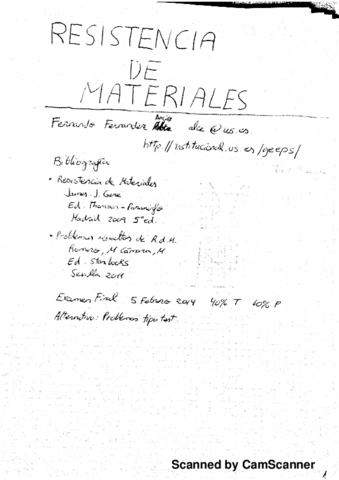 RESISTENCIA
DE
MATERIALES
Fernando Fernandez Ancio alce@us.es
http://institucional.us.es/geeps/
Bibliografía
• Resistencia de Materiales
James. J. Gere
Ed. Thomson - Paraninfo
Madrid 2009 5ª ed.
• Problemas resueltos de R.d.M.
Romero, M Cámara, M
Ed. Starbooks
Sevilla 2011
Examen Final 5 Febrero 2014 40% T 60% P
Alternativo: Problemas tipo test.
1
Scanned by CamScanner